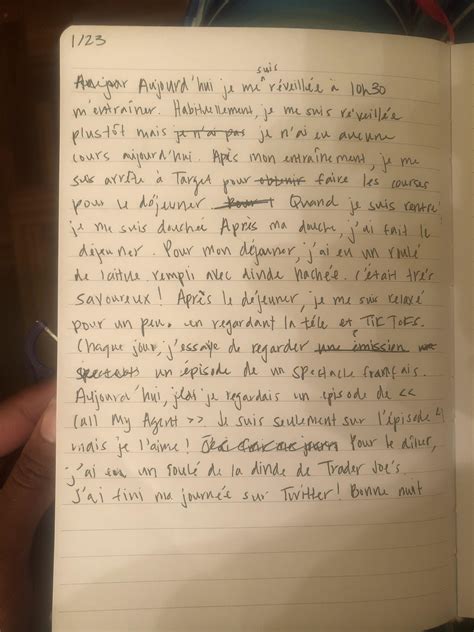 1/23
Aujourd'hui je me suis réveillée à 10h30
m'entraîner. Habituellement, je me suis réveillée
plustôt mais je n'ai pas je n'ai eu aucune
cours aujourd'hui. Après mon entraînement, je me
suis arrêté à Target pour obtenir faire les courses
pour le déjeuner. Quand je suis rentré
je me suis douchée Après ma douche, j'ai fait le
déjeuner. Pour mon déjeuner, j'ai eu un roulé
de laitue rempli avec dinde hachée. c'était très
savoureux! Après le déjeuner, je me suis relaxé
pour un peu. en regardant la téle et TikToks.
Chaque jour, j'essaye de regarder une émission
un épisode de un spectacle français.
Aujourd'hui, je regardais un episode de <<
Call My Agent >> Je suis seulement sur l'épisode 4
mais je l'aime! Pour le dîner,
j'ai eu un roulé de la dinde de Trader Joe's.
J'ai fini ma journée sur Twitter! Bonne nuit